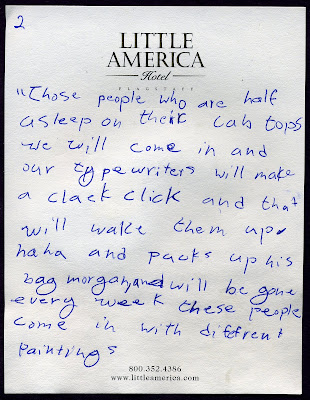 2
LITTLE
AMERICA
Hotel
FLAGSTAFF
"Those people who are half
asleep on their Lab tops
we will come in and
our typewriters will make
a clack click and that
will wake them up"
haha and packs up his
bag morgan, and will be gone
every week these people
come in with diffrent
paintings
800.352.4386
www.littleamerica.com